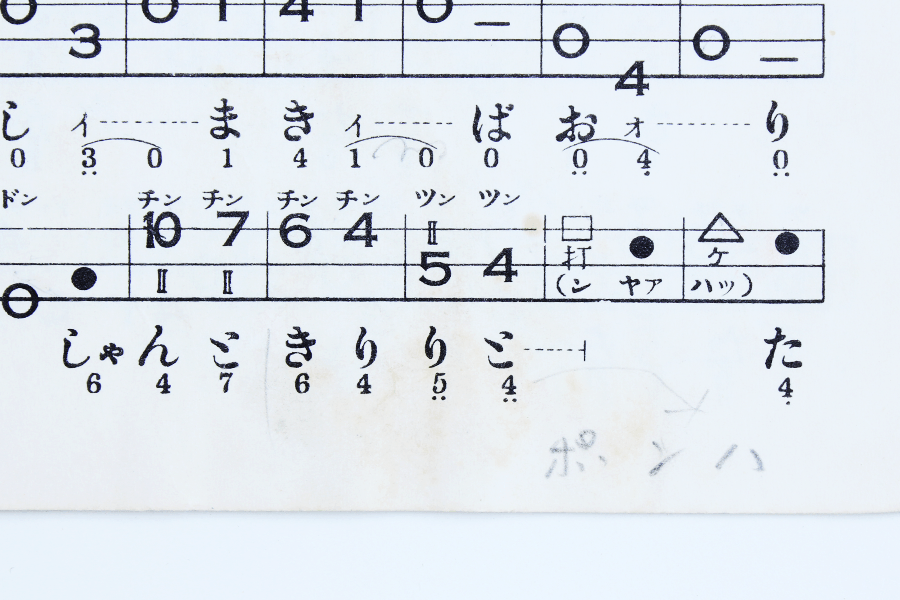 0 3 0 1 4 1 0 — 0 4 0 —
し イ ま き イ ば お オ り
0 3 0 1 4 1 0 0 0 4 0
ドン チン チン チン チン ツン ツン
10 7 6 4 Ⅱ □ △ ●
0 ● Ⅱ Ⅱ 5 4 打 ● ケ
(ン ヤァ ハッ)
しゃ ん と き り り と た
6 4 7 6 4 5 4 4
ポンハ